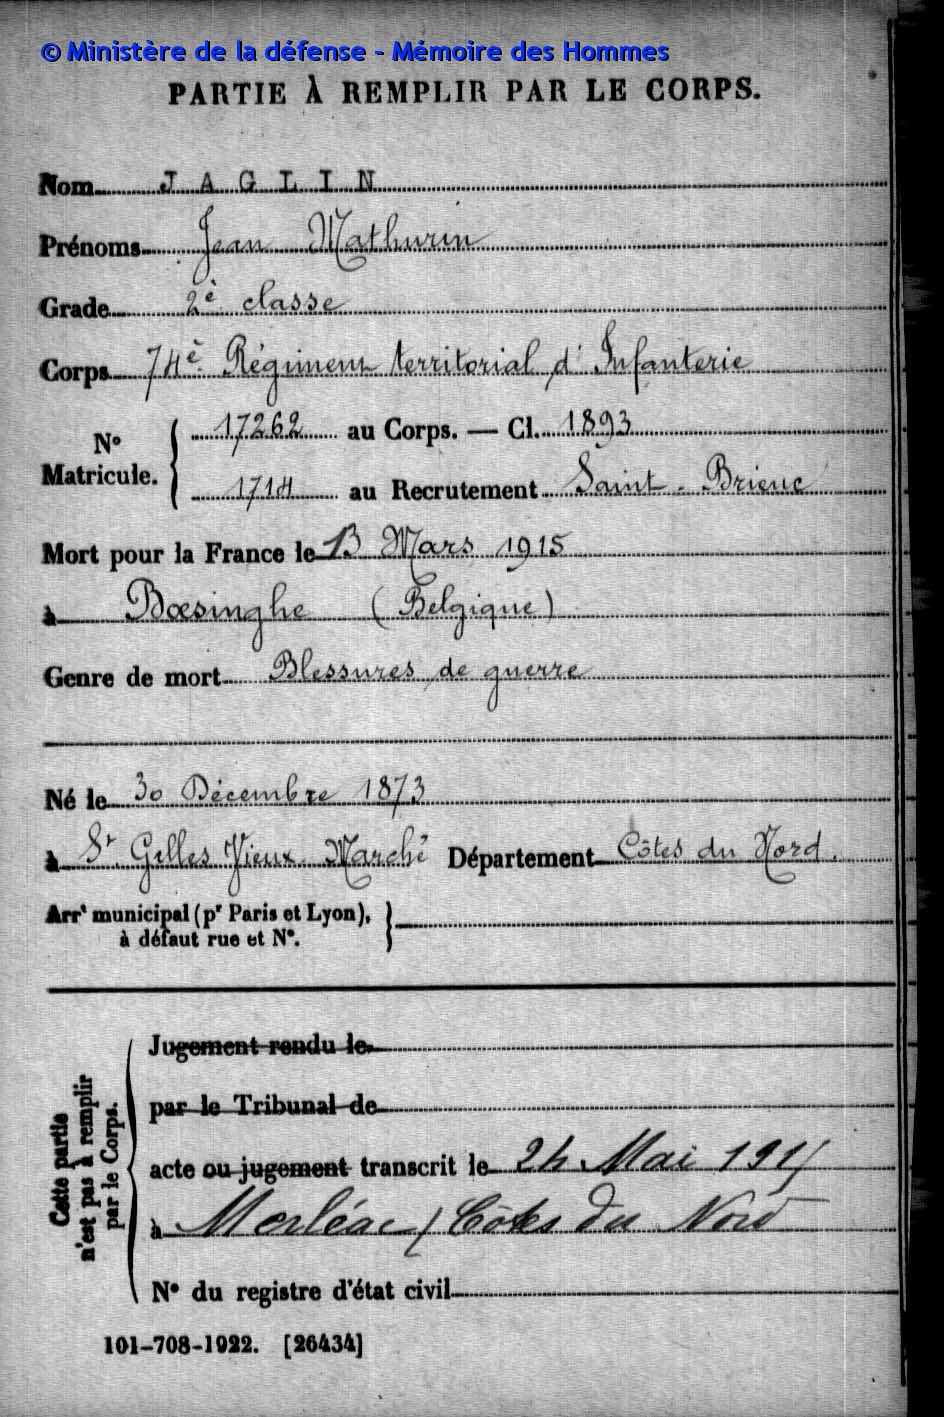 © Ministère de la défense - Mémoire des Hommes
PARTIE À REMPLIR PAR LE CORPS.
Nom JAGLIN
Prénoms Jean Mathurin
Grade 2è classe
Corps 74è Régiment territorial d'Infanterie
N° Matricule. { 17262 au Corps. — Cl. 1893
1714 au Recrutement Saint-Brieuc
Mort pour la France le 13 Mars 1915
à Bœsinghe (Belgique)
Genre de mort Blessures de guerre
Né le 30 Décembre 1873
à St Gilles Vieux Marché Département Côtes du Nord.
Arrt municipal (pr Paris et Lyon),
à défaut rue et N°.
Cette partie
n'est pas à remplir
par le Corps.
Jugement rendu le
par le Tribunal de
acte ou jugement transcrit le 24 Mai 1915
à Merléac / Côtes du Nord
N° du registre d'état civil
101-708-1922. [26434]